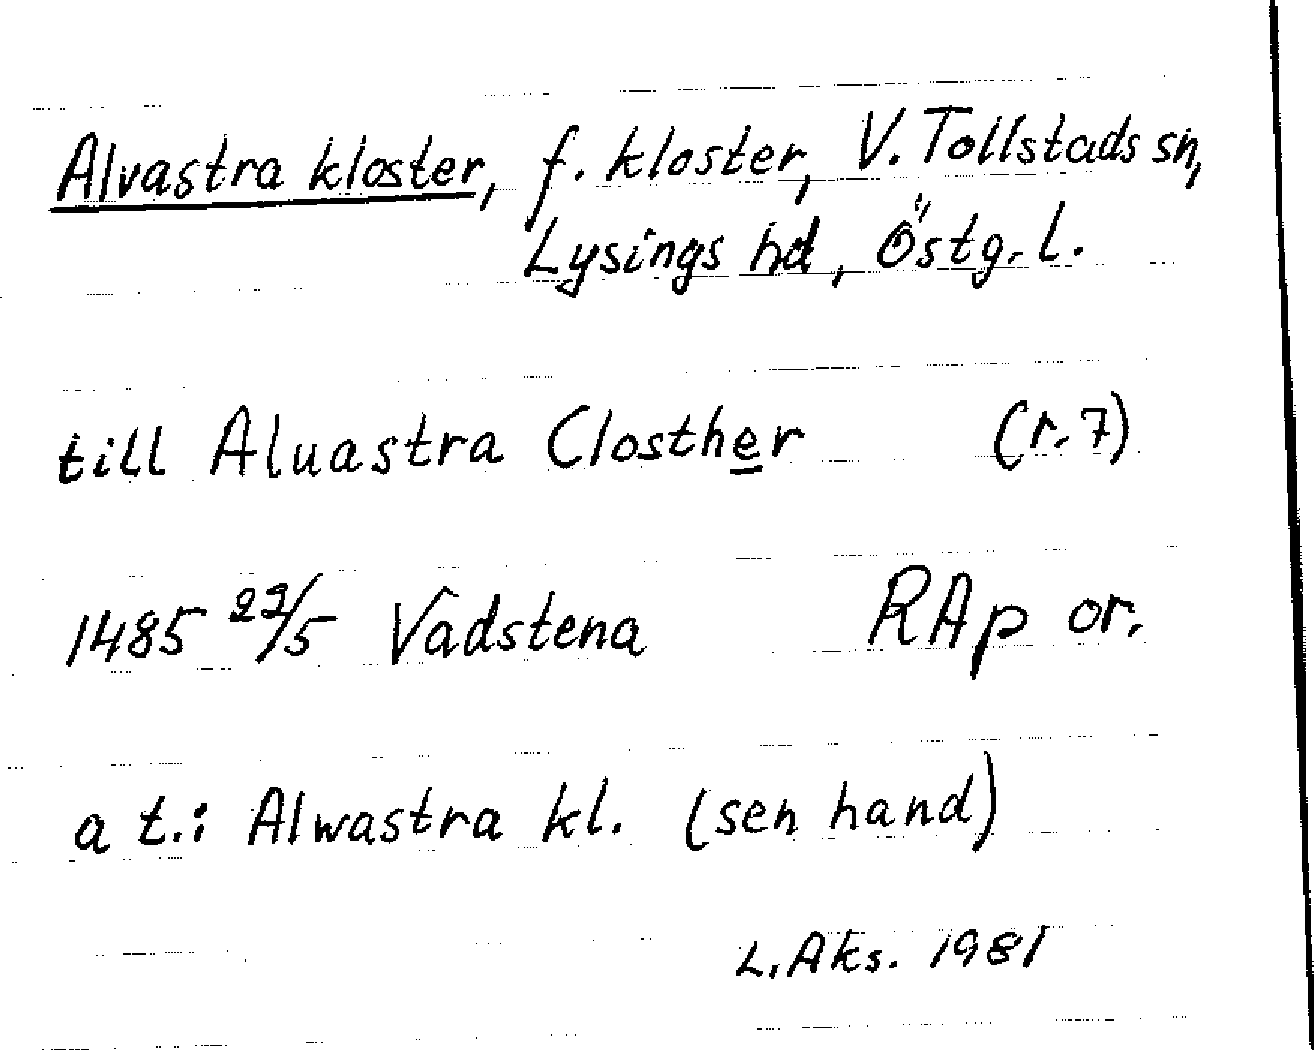 Alvastra kloster, f. kloster, V. Tollstads sn,
Lysings hd, Östg. l.
till Aluastra Closther (r. 7)
1485 22/5 Vadstena RAp or.
a t.: Alwastra kl. (sen hand)
L. Aks. 1981